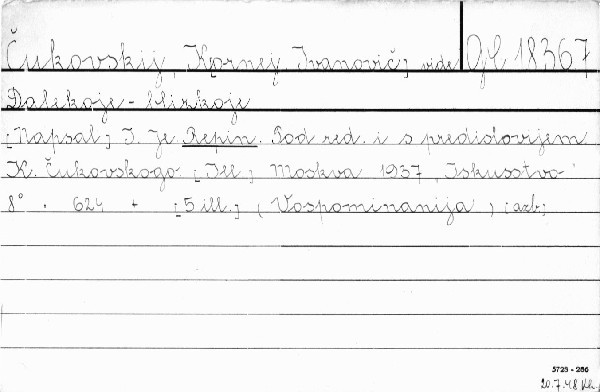 Čukovskij, Kornej Ivanovič, vide
Gl 18367
Dalekoje - blizkoje
[Napsal] I. Je. Repin. Pod red. i s predislovijem
K. Čukovskogo [Ill.] Moskva 1937, Iskusstvo
8° . 624 + [5 ill.] (Vospominanija)
5723 - 286
20.7.48